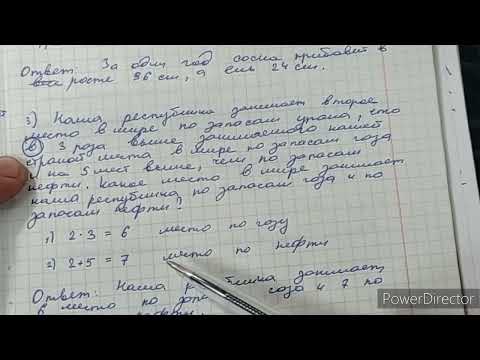 Ответ: За один год сосна прибавит в
росте 36 см, а ель 24 см.
3) Наша республика занимает второе
место в мире по запасам урана, что
в 3 раза выше занимаемого нашей
страной места в мире по запасам газа
и на 5 мест выше, чем по запасам
нефти. Какое место в мире занимает
наша республика по запасам газа и по
запасам нефти?
1) 2·3 = 6 место по газу
2) 2+5 = 7 место по нефти
Ответ: Наша занимает
6 место по газа и 7 по
PowerDirector